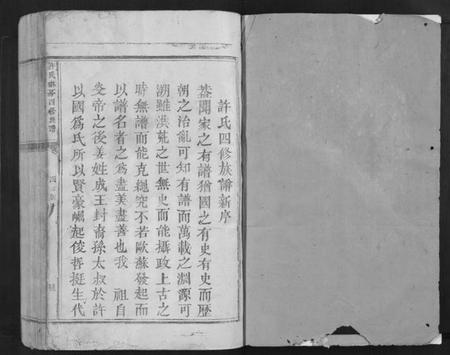 許氏四修族譜新序
葢聞家之有譜猶國之有史有史而歷
朝之治亂可知有譜而萬載之淵源可
溯雖洪荒之世無史而能攝政上古之
時無譜而能克繩究不若歐蘇發起而
以譜名者之爲盡美盡善也我 祖自
炎帝之後姜姓成王封裔孫太叔於許
以國爲氏所以賢豪崛起俊哲挺生代
許氏 四修族譜